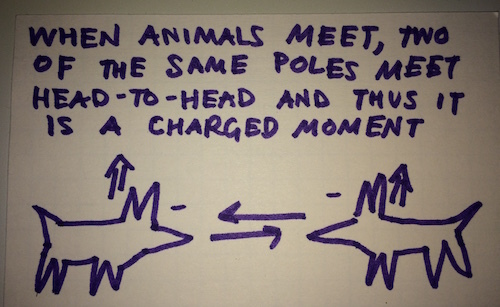 WHEN ANIMALS MEET, TWO
OF THE SAME POLES MEET
HEAD-TO-HEAD AND THUS IT
IS A CHARGED MOMENT
- -